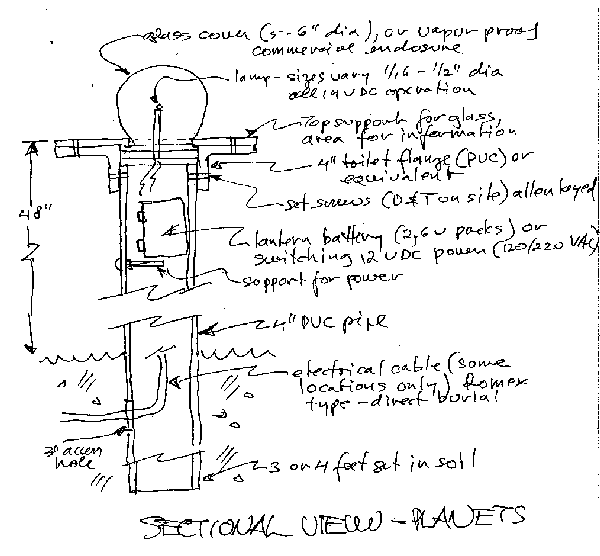 glass cover (5-6" dia), or vapor proof
commercial enclosure
lamp-sizes vary 1/16 - 1/2" dia
all 14 VDC operation
Top support for glass,
area for information
4" toilet flange (PVC) or
equivalent
set screws (D&T on site) allen keyed
lantern battery (2, 6V packs) or
switching 12 VDC power (120/220 VAC)
support for power
48"
4" PVC pipe
electrical cable (some
locations only) Romex
type-direct burial
3" access
hole
3 or 4 feet set in soil
SECTIONAL VIEW - PLANETS